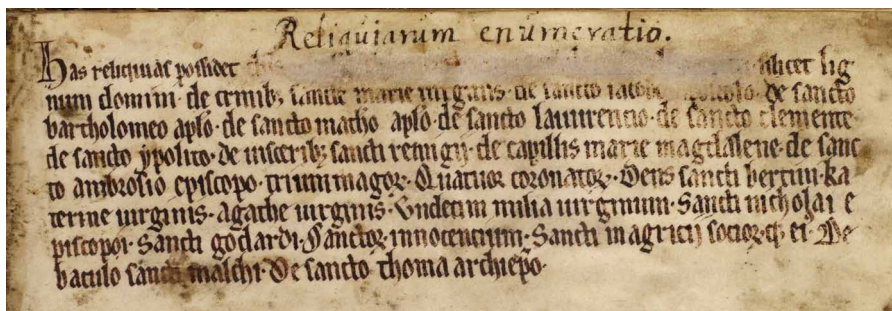 Reliquiarum enumeratio.
Has reliquias possidet scilicet lig
num domini· de crinib; sancte marie uirginis· de sancto iacobo apostolo· de sancto
bartholomeo apło· de sancto matheo apło· de sancto laurencio· de sancto clemente·
de sancto ypolito· de uisceribꝫ sancti remigii· de capillis marie magdalene· de sanc
to ambrosio episcopo· trium magoꝝ· Quatuor coronatoꝝ· Dens sancti bertini· ka
terine uirginis· agathe uirginis· Vndecim milia uirginum· Sancti nicholai e
piscopi· Sancti godardi· Sanctoꝝ innocentium· Sancti mauricii socioꝝqꝫ ei· De
baculo sancti malchi· De sancto thoma archiep̄o·